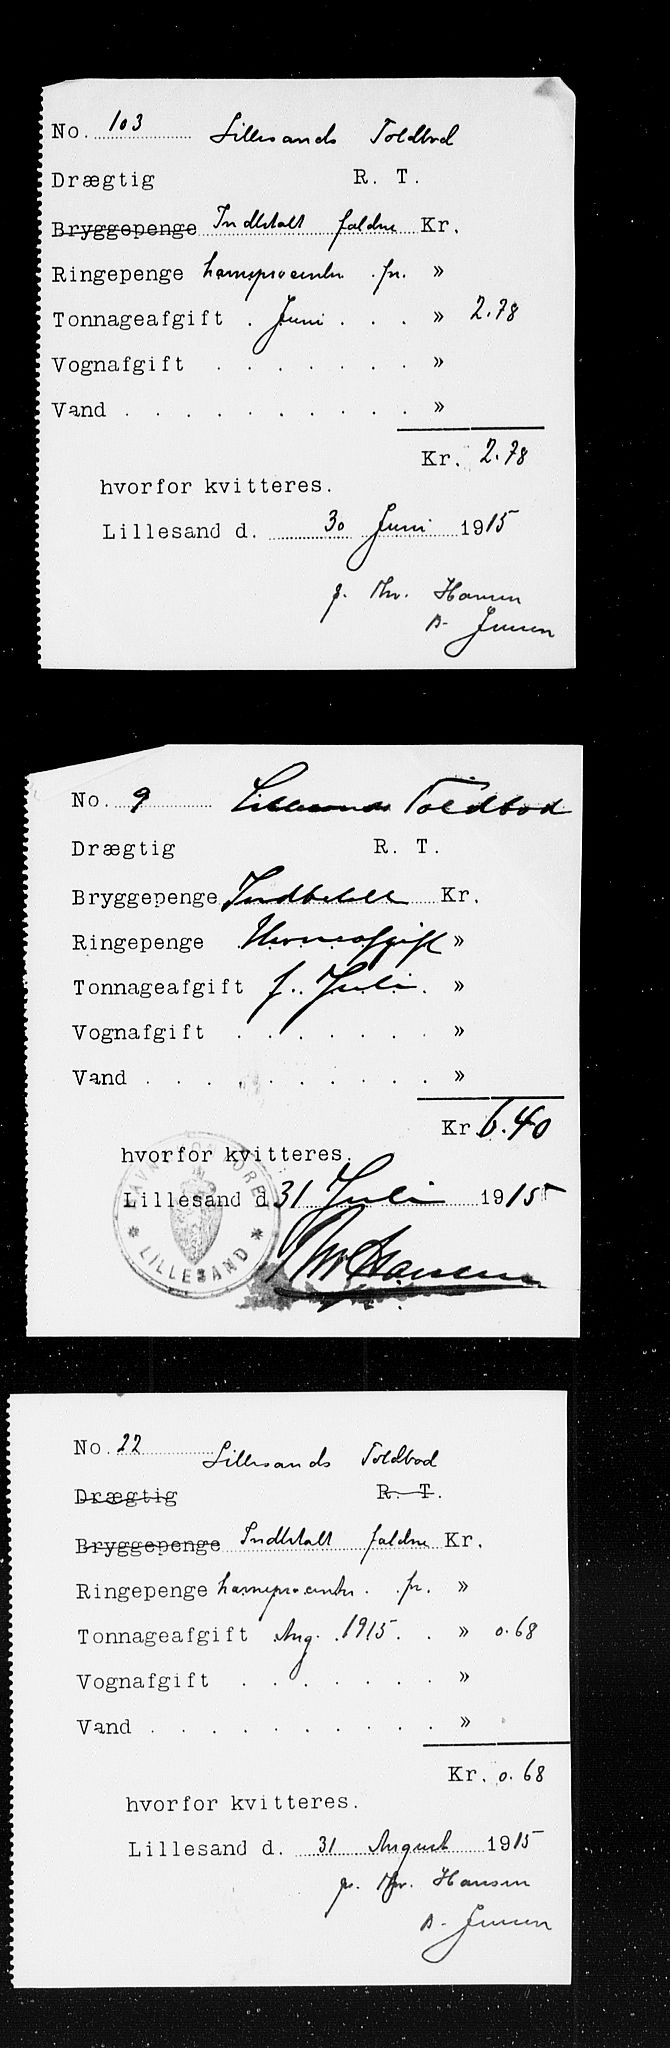 No. 103 Lillesands Toldbod
Drægtig R. T.
Bryggepenge Indbetalt faldne Kr.
Ringepenge havneprocenter fr. »
Tonnageafgift . Juni . . . » 2.78
Vognafgift . . . . . . . »
Vand . . . . . . . . . . »
Kr. 2.78
hvorfor kvitteres.
Lillesand d. 30 Juni 1915
p. Thv. Hansen
B. Jensen
No. 9 Lillesands Toldbod
Drægtig R. T.
Bryggepenge Indbetalt Kr.
Ringepenge Havneafgift »
Tonnageafgift f. Juli . »
Vognafgift . . . . . . . »
Vand . . . . . . . . . . »
Kr. 6.40
hvorfor kvitteres.
Lillesand d. 31 Juli 1915
Thv Hansen
LILLESAND
No. 22 Lillesands Toldbod
Drægtig R. T.
Bryggepenge Indbetalt faldne Kr.
Ringepenge havneprocenter . fr. »
Tonnageafgift Aug. 1915 . . » 0.68
Vognafgift . . . . . . . »
Vand . . . . . . . . . . »
Kr. 0.68
hvorfor kvitteres.
Lillesand d. 31 August 1915
pr. Thv. Hansen
B. Jensen